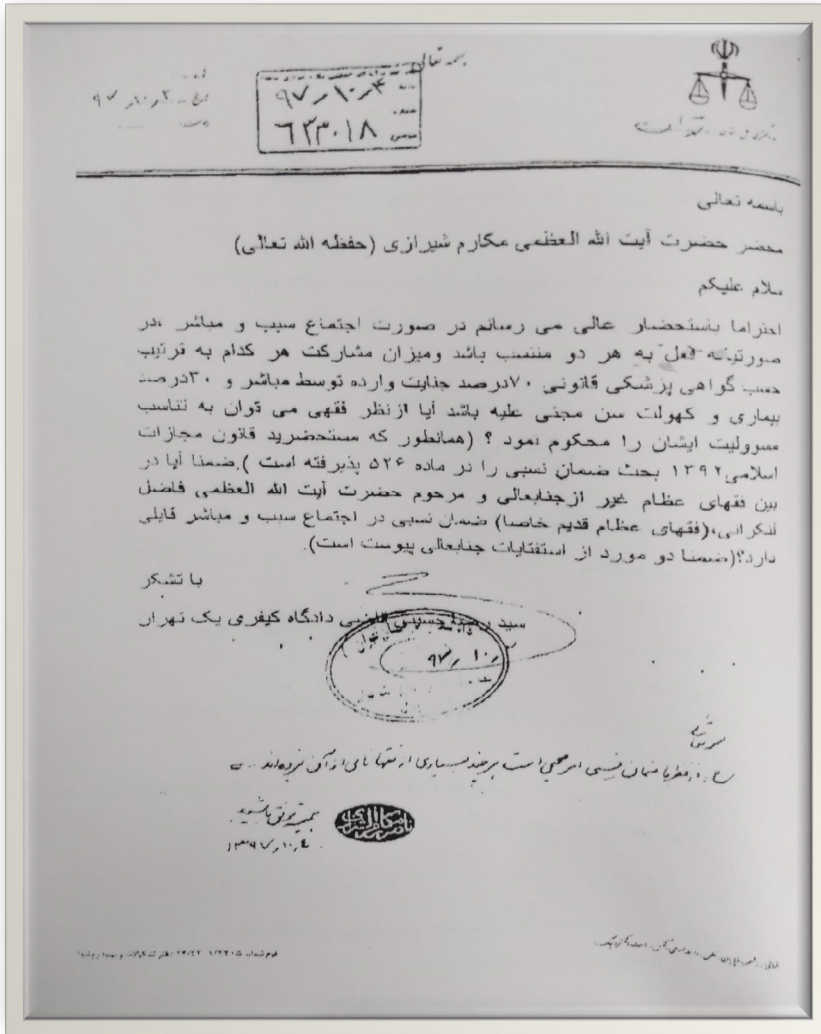 بسمه تعالی
۹۷/۱۰/۲
۹۷/۱۰/۴
۶۳۰۱۸
باسمه تعالی
محضر حضرت آیت الله العظمی مکارم شیرازی (حفظه الله تعالی)
سلام علیکم
احتراما باستحضار عالی می رسانم در صورت اجتماع سبب و مباشر ،در
صورتیکه فعل به هر دو منتسب باشد ومیزان مشارکت هر کدام به ترتیب
حسب گواهی پزشکی قانونی ۷۰درصد جنایت وارده توسط مباشر و ۳۰درصد
بیماری و کهولت سن مجنی علیه باشد آیا ازنظر فقهی می توان به تناسب
مسوولیت ایشان را محکوم نمود ؟ (همانطور که مستحضرید قانون مجازات
اسلامی۱۳۹۲ بحث ضمان نسبی را در ماده ۵۲۶ پذیرفته است ).ضمنا آیا در
بین فقهای عظام غیر ازجنابعالی و مرحوم حضرت آیت الله العظمی فاضل
لنکرانی،(فقهای عظام قدیم خاصا) ضمان نسبی در اجتماع سبب و مباشر قایلی
دارد؟(ضمنا دو مورد از استفتایات جنابعالی پیوست است).
با تشکر
سید حسینی قاضی دادگاه کیفری یک تهران
۹۷/۱۰/
از نظر ما ضمان نسبی امر صحیحی است هر چند بسیاری از فقها نامی از آن نبرده‌اند
همیشه موفق باشید
۱۳۹۷/۱۰/۴